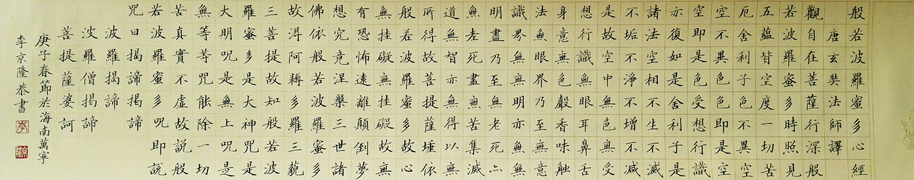 般若波羅蜜多心經
唐玄奘法師譯
觀自在菩薩行深般
若波羅蜜多時照見
五蘊皆空度一切苦
厄舍利子色不異空
空不異色色即是空
空即是色受想行識
亦復如是舍利子是
諸法空相不生不滅
不垢不淨不增不減
是故空中無色無受
想行識無眼耳鼻舌
身意無色聲香味觸
法無眼界乃至無意
識界無無明亦無無
明盡乃至無老死亦
無老死盡無苦集滅
道無智亦無得以無
所得故菩提薩埵依
般若波羅蜜多故心
無挂礙無挂礙故無
有恐怖遠離顛倒夢
想究竟涅槃三世諸
佛依般若波羅蜜多
故得阿耨多羅三藐
三菩提故知般若波
羅蜜多是大神咒是
大明咒是無上咒是
無等等咒能除一切
苦真實不虛故說般
若波羅蜜多咒即說
咒曰揭諦揭諦
波羅揭諦
波羅僧揭諦
菩提薩婆訶
庚子春節於海南萬寧
李京隆恭書